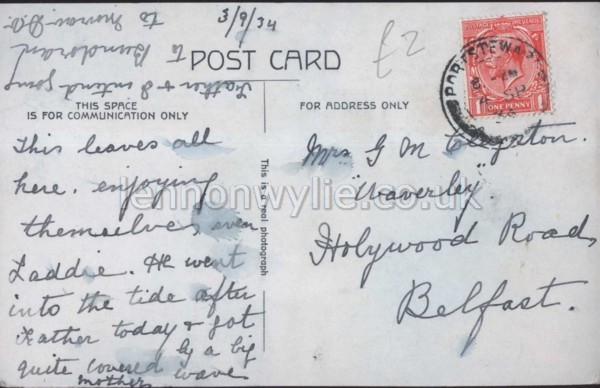 3/9/34
£2
POST CARD
THIS SPACE
IS FOR COMMUNICATION ONLY
FOR ADDRESS ONLY
This leaves all
here. enjoying
themselves even
Laddie. He went
into the tide after
Father today & got
quite covered by a big
wave
mother
Father & I intend going
to Bundoran
to
This is a real photograph
Mrs G M
"Waverley"
Holywood Road
Belfast.
PORTSTEWART
POSTAGE REVENUE
ONE PENNY
lennonwylie.co.uk